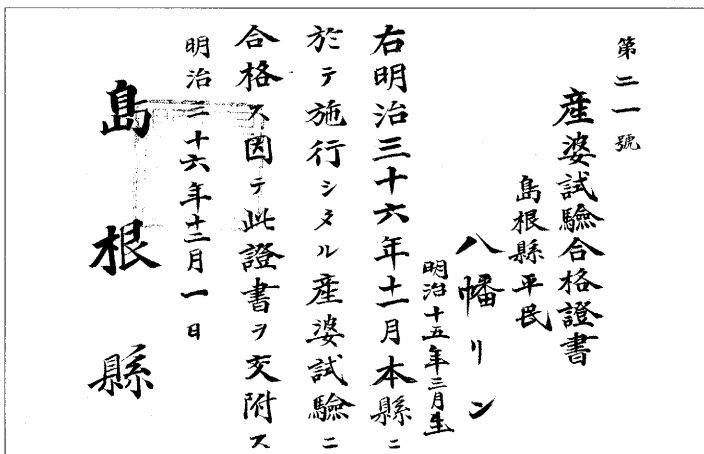 第二一號
産婆試驗合格證書
島根縣平民
八幡リン
明治十五年三月生
右明治三十六年十一月本縣ニ
於テ施行シタル産婆試驗ニ
合格ス因テ此證書ヲ交附ス
明治三十六年十二月一日
島根縣